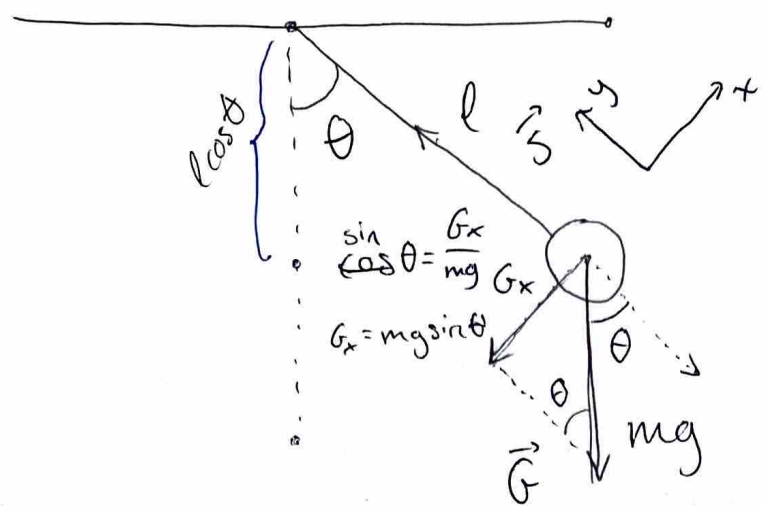 l cosθ
θ
l
S⃗
y
x
sin
c̶o̶s̶ θ = Gx/mg
Gx
Gx = mg sinθ
θ
θ
mg
G⃗